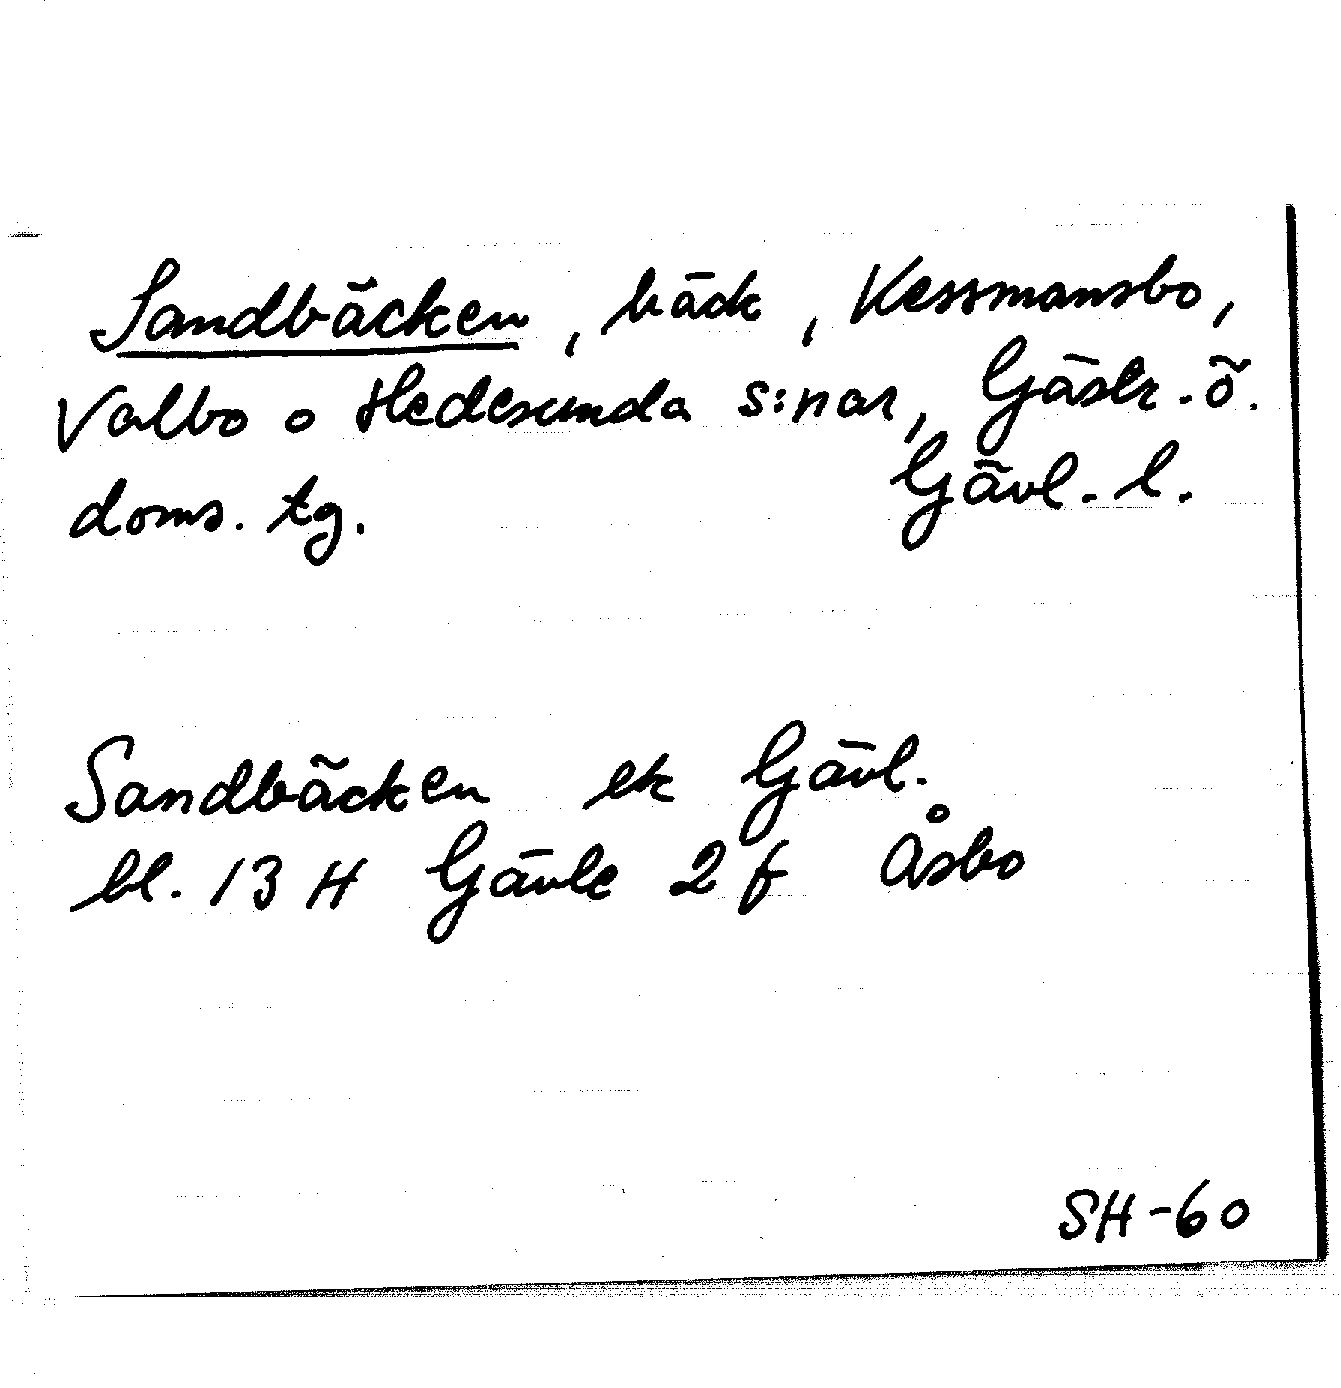 Sandbäcken, bäck, Kessmansbo,
Valbo o Hedesunda s:nar, Gästr.ö.
doms. tg. Gävl. l.
Sandbäcken ek Gävl.
bl. 13 H Gävle 2 f Åsbo
SH-60